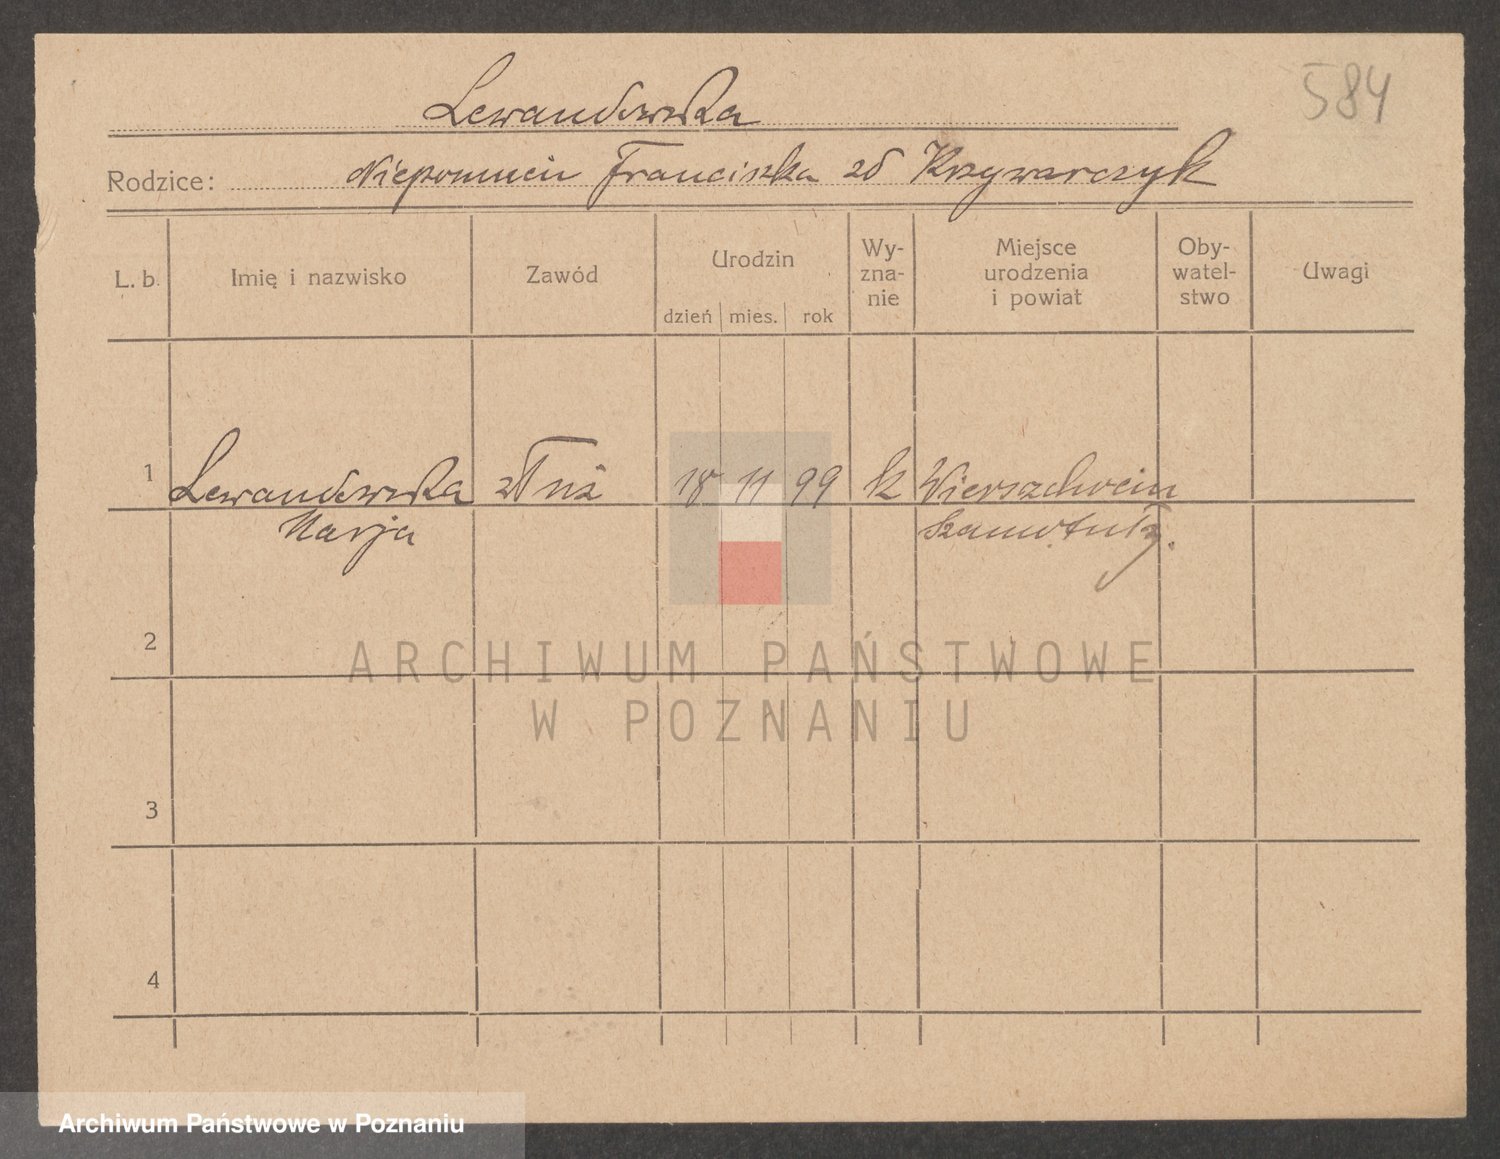 584
Lewandowska
Rodzice: Niepomucin Franciszka zd Krzywarczyk
L. b. Imię i nazwisko Zawód Urodzin dzień mies. rok Wy-zna-nie Miejsce urodzenia i powiat Oby-watel-stwo Uwagi
1 Lewandowska 18 11 99 k
Marja
2
ARCHIWUM PAŃSTWOWE
W POZNANIU
3
4
Archiwum Państwowe w Poznaniu